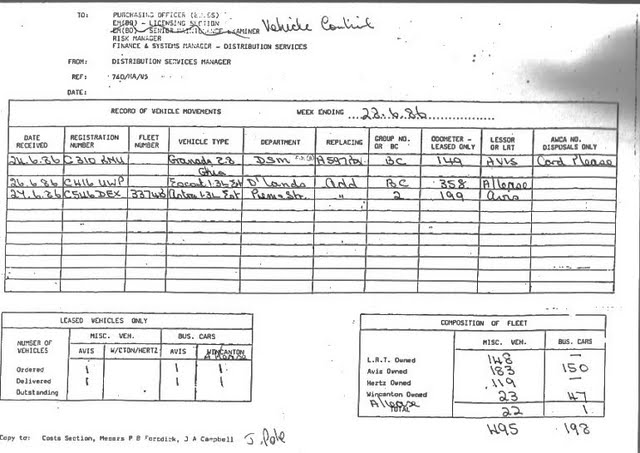 TO: PURCHASING OFFICER
EM(BO) - LICENSING SECTION Vehicle Control
EM(BO) - SENIOR MAINTENANCE EXAMINER
RISK MANAGER
FINANCE & SYSTEMS MANAGER - DISTRIBUTION SERVICES
FROM: DISTRIBUTION SERVICES MANAGER
REF:
DATE:
RECORD OF VEHICLE MOVEMENTS WEEK ENDING 22.6.86
DATE RECEIVED REGISTRATION NUMBER FLEET NUMBER VEHICLE TYPE DEPARTMENT REPLACING GROUP NO. OR BC ODOMETER - LEASED ONLY LESSOR OR LRT AWCA NO. DISPOSALS ONLY
24.6.86 Granada 2.8 Ghia DSM BC 149 AVIS Card Please
26.6.86 Escort 1.3L Est D'Lands Add BC 358 Allease
C546 DEX 33748 Astra 1.3L Est " 2 199 Avis
LEASED VEHICLES ONLY
NUMBER OF VEHICLES MISC. VEH. BUS. CARS
AVIS W/CTON/HERTZ AVIS WINCANTON Allease
Ordered 1 1 1
Delivered 1 1 1
Outstanding
COMPOSITION OF FLEET
MISC. VEH. BUS. CARS
L.R.T. Owned 148 —
Avis Owned 183 150
Hertz Owned 119 —
Wincanton Owned 23 47
Allease 22 1
TOTAL 495 198
Copy to: Costs Section, Messrs P B Forodick, J A Campbell J. Pole